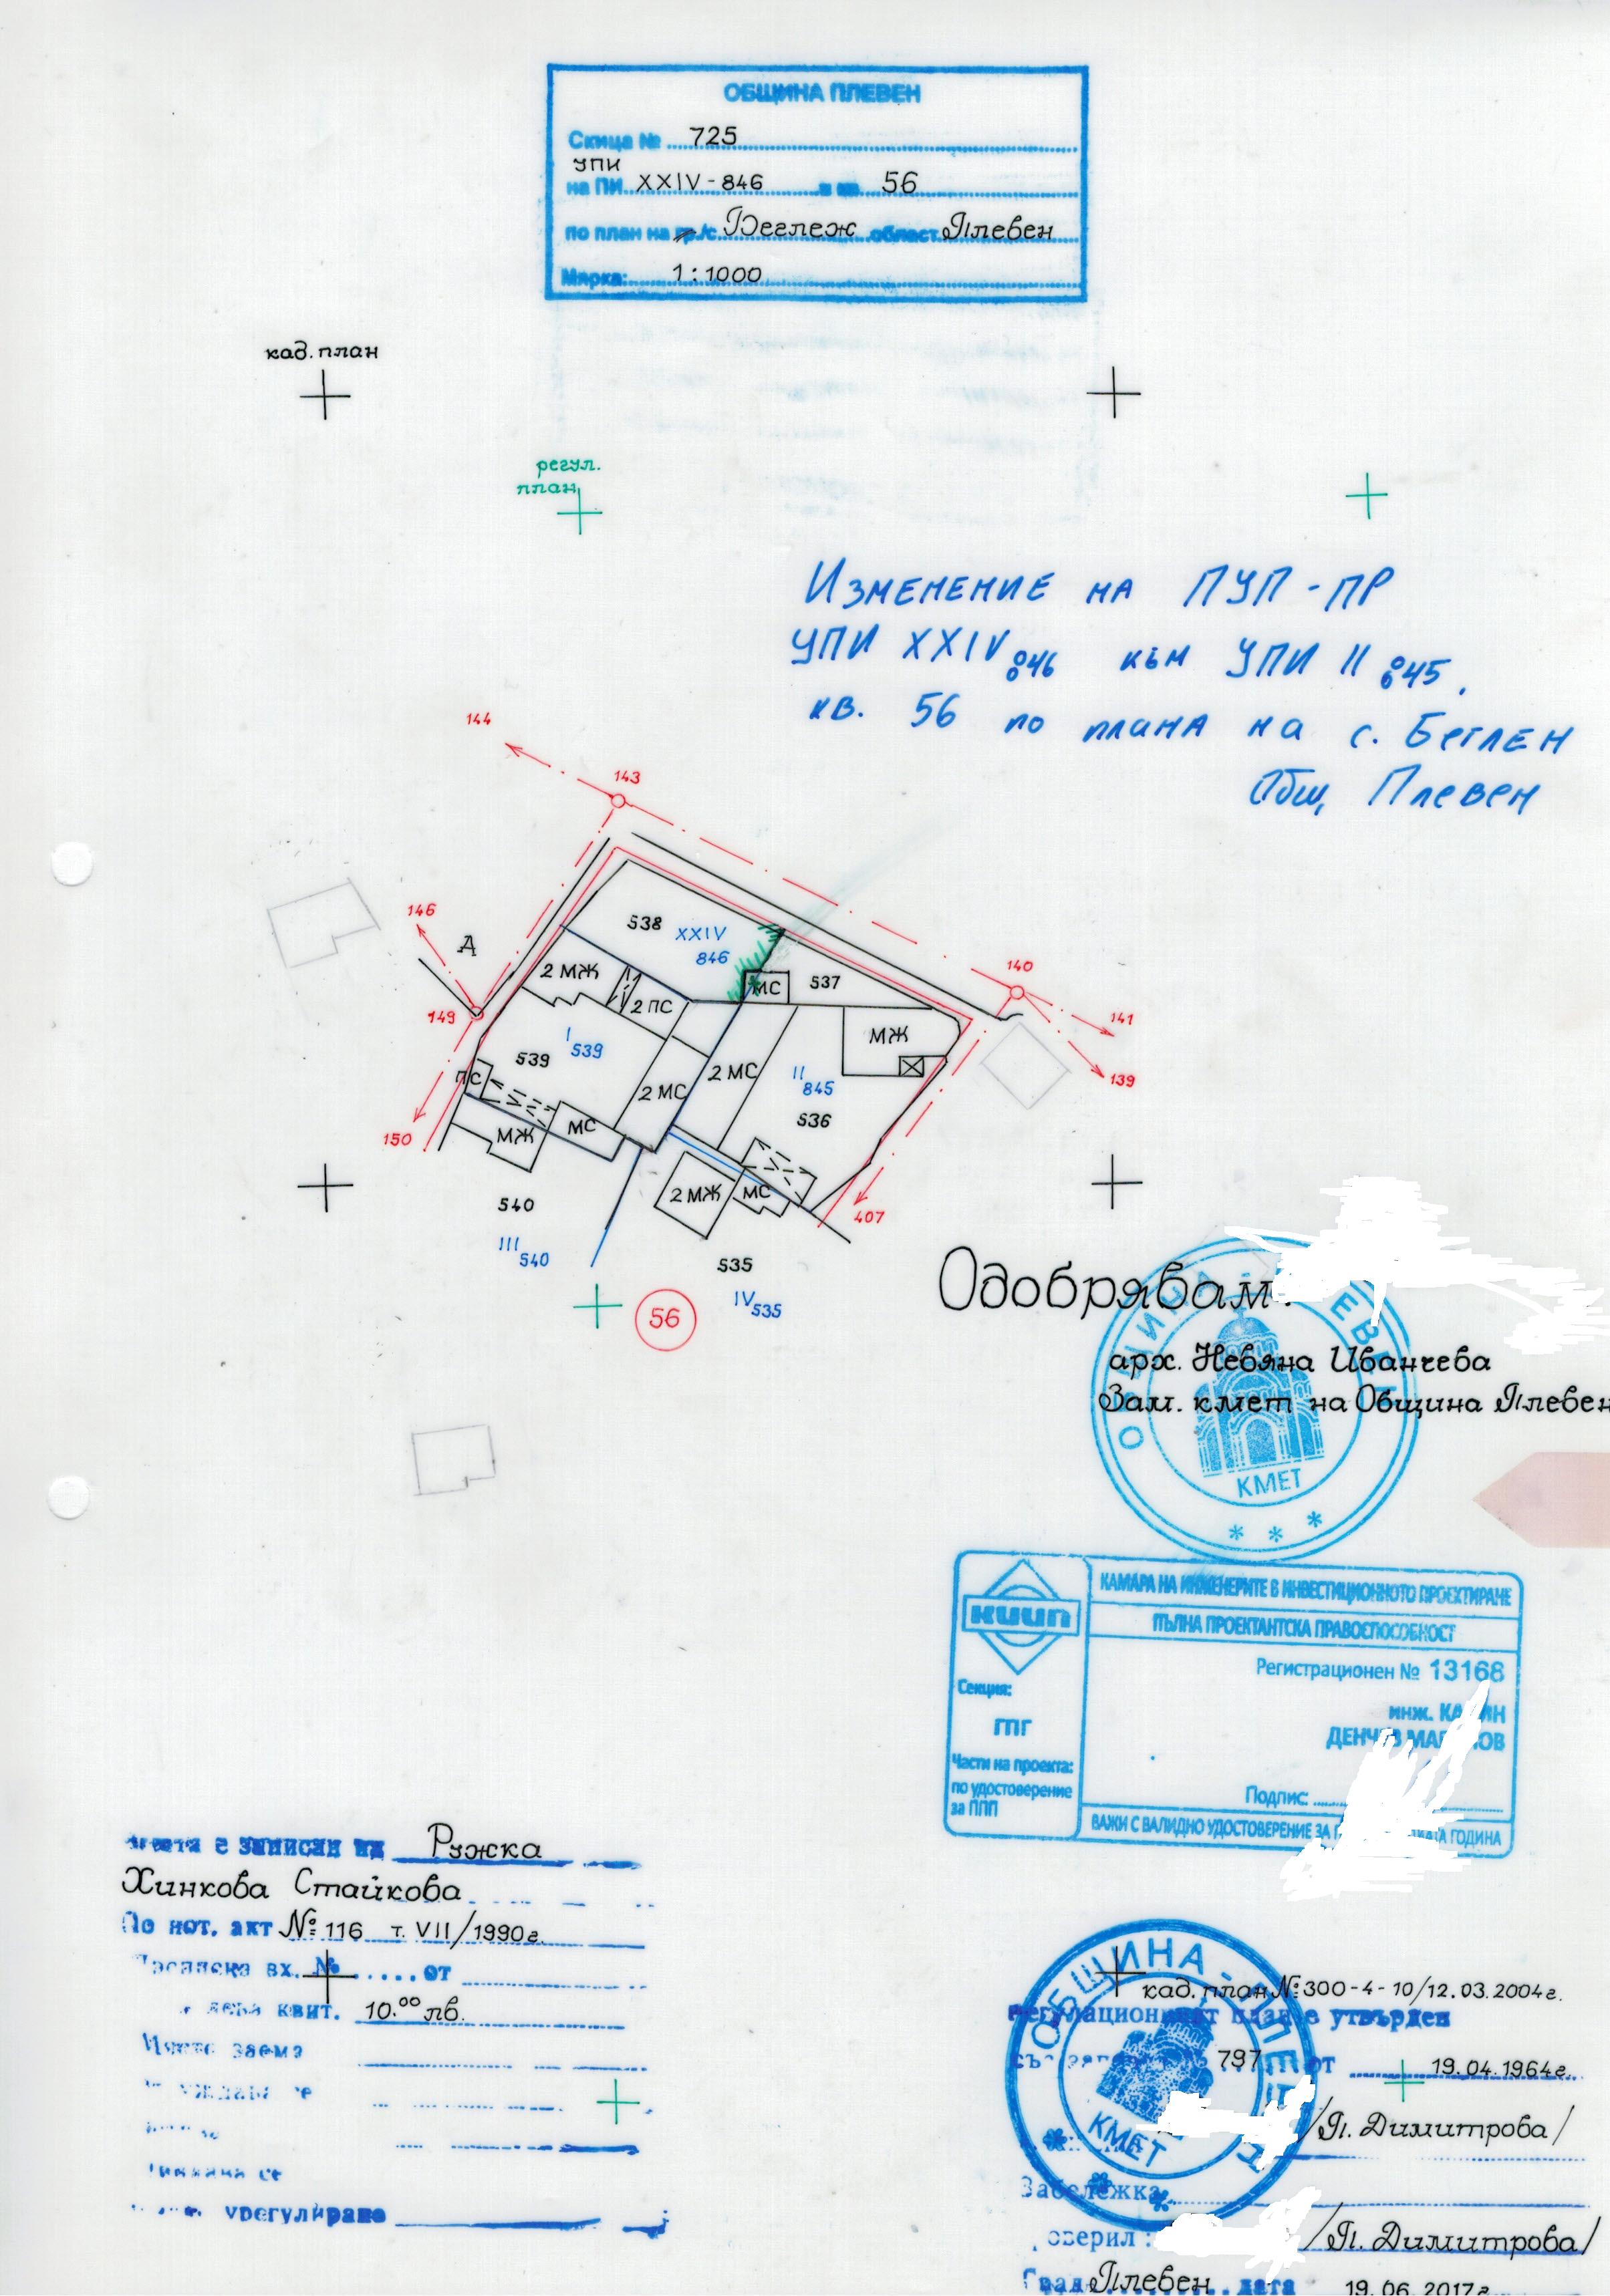 ОБЩИНА ПЛЕВЕН
Скица № 725
УПИ
на ПИ XXIV-846 в кв. 56
по план на гр./с. Беглеж област Плевен
Мярка: 1:1000
кад. план
регул.
план
Изменение на ПУП-ПР
УПИ XXIV 846 към УПИ II 845,
кв. 56 по плана на с. Беглен
Общ. Плевен
144
143
146
А
538
XXIV
846
140
2 МЖ
МС
537
149
2 ПС
141
МЖ
I 539
539
2 МС
II
845
139
ПС
2 МС
536
150
МЖ
МС
2 МЖ
МС
407
540
III 540
535
IV 535
56
Одобрявам:
арх. Невяна Иванчева
Зам. кмет на Община Плевен
КМЕТ
КАМАРА НА ИНЖЕНЕРИТЕ В ИНВЕСТИЦИОННОТО ПРОЕКТИРАНЕ
КИИП
ПЪЛНА ПРОЕКТАНТСКА ПРАВОСПОСОБНОСТ
Регистрационен № 13168
Секция:
ГПГ
инж.
Части на проекта:
по удостоверение
за ППП
Подпис:
ВАЖИ С ВАЛИДНО УДОСТОВЕРЕНИЕ ЗА ГОДИНА
е записан на Ружка
Хинкова Стайкова
По нот. акт №116 т. VII/1990г.
вх. № от
квит. 10.00 лв.
заема
се
се
урегулирано
ОБЩИНА - ПЛЕВЕН
КМЕТ
кад. план №300-4-10/12.03.2004г.
Регулационният план е утвърден
със 797 от 19.04.1964г.
/П. Димитрова/
Забележка
/П. Димитрова/
Плевен дата 19.06.2017г.